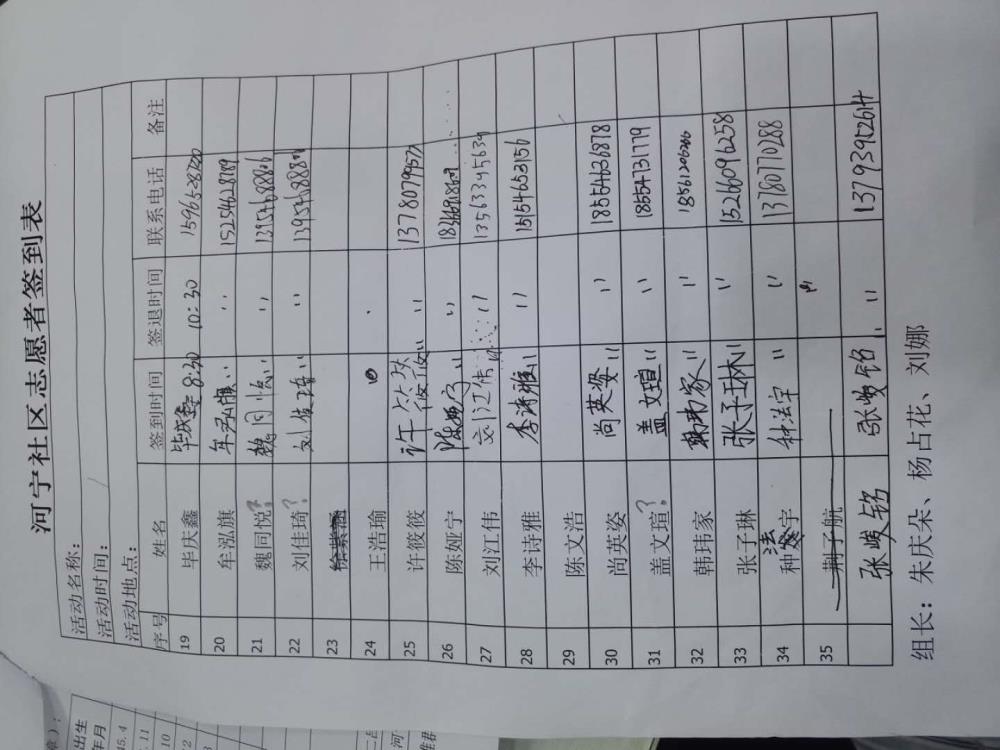 河宁社区志愿者签到表
活动名称：
活动时间：
活动地点：
序号 姓名 签到时间 签退时间 联系电话 备注
19 毕庆鑫 毕庆鑫 8:30 10:30
20 牟泓旗 牟泓旗 〃 〃 15254628789
21 魏同悦？ 魏同悦 〃 〃 13954688806
22 刘佳琦？ 刘佳琦 〃 〃
23
24 王浩瑜
25 许筱筱 许筱筱 〃 〃
26 陈娅宁 陈娅宁 〃 〃
27 刘江伟 刘江伟 〃 〃 13563395639
28 李诗雅 李诗雅 〃 〃 15154653156
29 陈文浩
30 尚英姿 尚英姿 〃 〃 18554636878
31 盖文瑄？ 盖文瑄 〃 〃 18554731779
32 韩玮家 韩玮家 〃 〃 18561206266
33 张子琳 张子琳 〃 〃 15266096258
34 种法宇 种法宇 〃 〃 13780770288
35 荆子航
张峻铭 张峻铭 〃 〃 13793952614
组长：朱庆朵、杨占花、刘娜
出生
年月